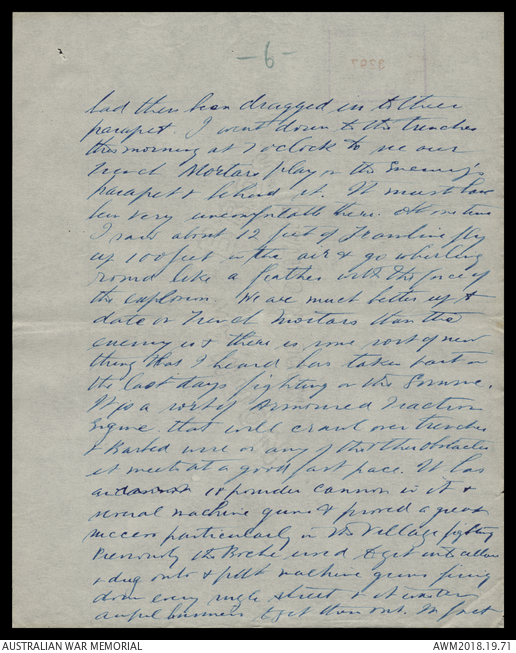 - 6 -
3297
had then been dragged in to their
parapet. I went down to the trenches
this morning at 7 oclock to see our
Trench Mortars play on the Enemy's
parapet & behind it. It must have
been very uncomfortable there. At one time
I saw about 12 feet of Tramline fly
up 100 feet in the air & go whirling
round like a feather with the force of
the explosion. We are much better up to
date in Trench Mortars than the
enemy is & there is some sort of new
thing that I heard has taken part in
the last days fighting on the Somme.
It is a sort of Armoured Traction
Engine that will crawl over trenches
& Barbed wire or any of the other obstacles
it meets at a good fast pace. It has
18 pounder cannon in it &
several machine guns & proved a great
success particularly in the Village fighting
Previously the Boche used to get into cellars
& dug outs & with machine guns firing
down every single street & it was an
awful business to get them out. In fact
AUSTRALIAN WAR MEMORIAL
AWM2018.19.71